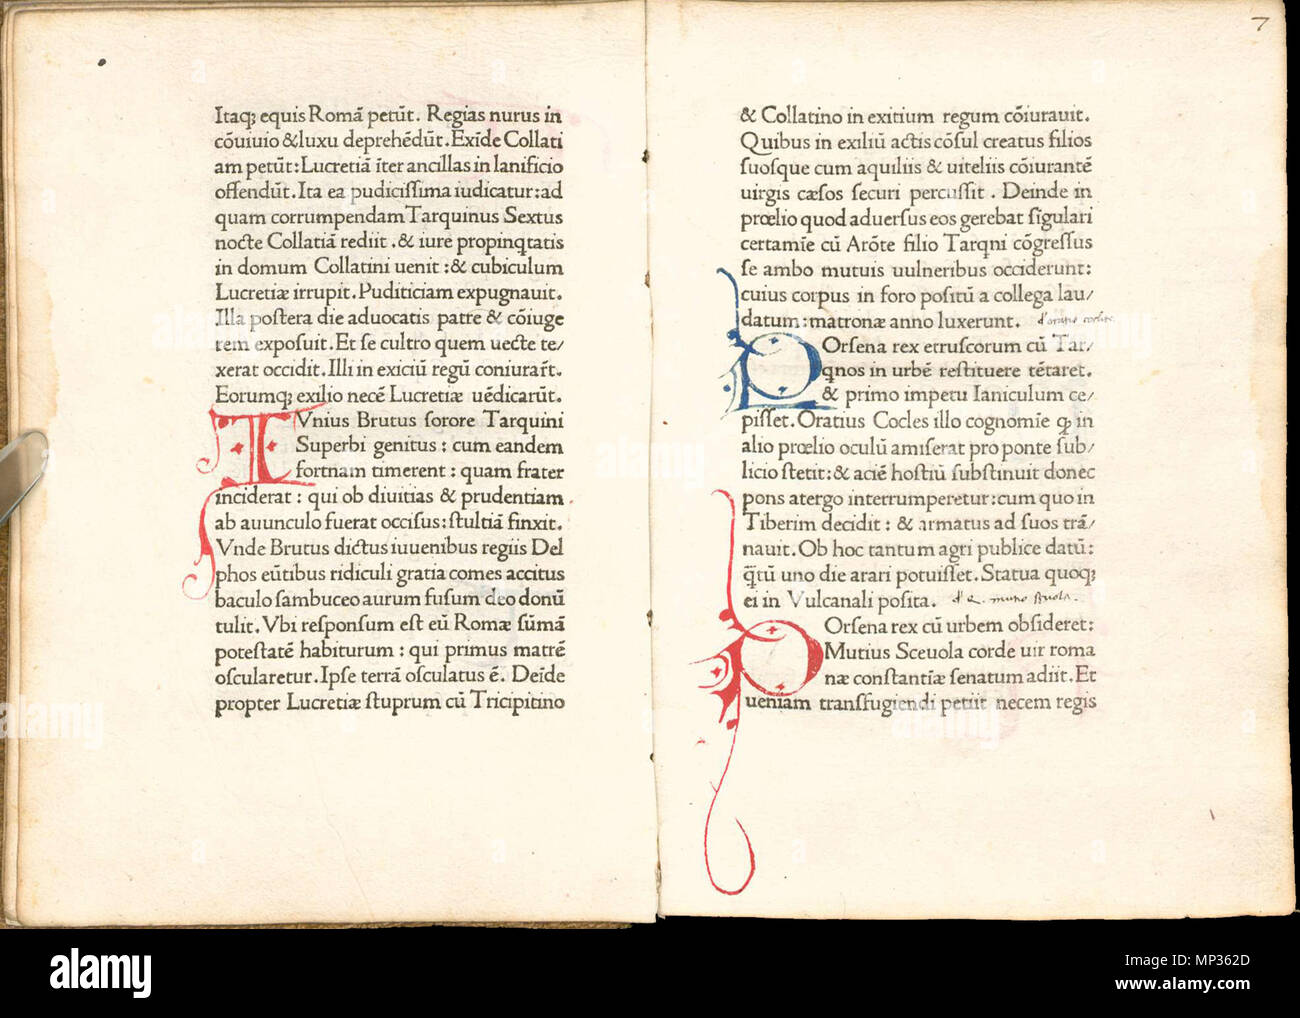 Itaqꝫ equis Romā petūt. Regias nurus in
cōuiuio &luxu deprehēdūt. Exīde Collati
am petūt: Lucretiā īter ancillas in lanificio
offendūt. Ita ea pudiciſſima iudicatur: ad
quam corrumpendam Tarquinus Sextus
nocte Collatiā rediit . & iure propinq̄tatis
in domum Collatini uenit : & cubiculum
Lucretiæ irrupit. Puditiciam expugnauit.
Illa poſtera die aduocatis patre & cōiuge
rem expoſuit. Et ſe cultro quem ueſte te/
xerat occidit. Illi in exiciū regū coniurar̄t.
Eorumqꝫ exilio necē Lucretiæ uēdicarūt.
IVnius Brutus ſorore Tarquini
Superbi genitus : cum eandem
fortnam timerent : quam frater
inciderat : qui ob diuitias & prudentiam
ab auunculo fuerat occiſus: ſtultiā finxit.
Vnde Brutus dictus iuuenibus regiis Del
phos eūtibus ridiculi gratia comes accitus
baculo ſambuceo aurum fuſum deo donū
tulit. Vbi reſponſum eſt eū Romæ ſūmā
poteſtatē habiturum : qui primus matrē
oſcularetur. Ipſe terrā oſculatus ē. Deīde
propter Lucretiæ ſtuprum cū Tricipitino
7
& Collatino in exitium regum cōiurauit.
Quibus in exiliū actis cōſul creatus filios
ſuoſque cum aquiliis & uiteliis cōiurantē
uirgis cæſos ſecuri percuſſit . Deinde in
prœlio quod aduerſus eos gerebat ſīgulari
certamīe cū Arōte filio Tarqni cōgreſſus
ſe ambo mutuis uulneribus occiderunt:
cuius corpus in foro poſitū a collega lau/
datum: matronæ anno luxerunt.
POrſena rex etruſcorum cū Tar/
qnos in urbē reſtituere tētaret.
& primo impetu Ianiculum ce/
piſſet. Oratius Cocles illo cognomīe qꝫ in
alio prœlio oculū amiſerat pro ponte ſub/
licio ſtetit: & aciē hoſtiū ſubſtinuit donec
pons atergo interrumperetur: cum quo in
Tiberim decidit : & armatus ad ſuos trā/
nauit. Ob hoc tantum agri publice datū:
q̄tū uno die arari potuiſſet. Statua quoqꝫ
ei in Vulcanali poſita.
POrſena rex cū urbem obſideret:
Mutius Sceuola corde uir roma
næ conſtantiæ ſenatum adiit. Et
ueniam tranſfugiendi petiit necem regis
alamy
Image ID: MP362D
www.alamy.com